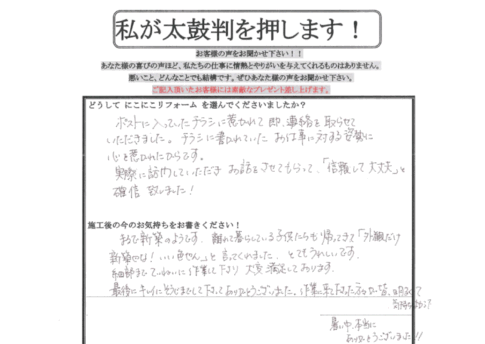 私が太鼓判を押します！
お客様の声をお聞かせ下さい！！
あなた様の喜びの声ほど、私たちの仕事に情熱とやりがいを与えてくれるものはありません。
悪いこと、どんなことでも結構です。ぜひあなた様の声をお聞かせ下さい。
ご記入頂いたお客様には素敵なプレゼント差し上げます。
どうして にこにこリフォーム を選んでくださいましたか？
ポストに入っていたチラシに惹かれて即、連絡を取らせて
いただきました。チラシに書かれていた お仕事に対する姿勢に
心を惹かれたからです。
実際に訪問していただき お話をさせてもらって、「信頼して大丈夫」と
確信致しました！
施工後の今のお気持ちをお書きください！
まるで新築のようです。離れて暮らしている子供たちも帰ってきて「外観だけ
新築やな！いい色やん」と言ってくれました。とてもうれしいです。
細部までていねいに作業して下さり大変満足しております。
最後にキレイにそうじまでして下さってありがとうございました。作業に来て下さった方が皆、明るくて
気持ちよかった！
暑い中、本当に
ありがとうございました!!